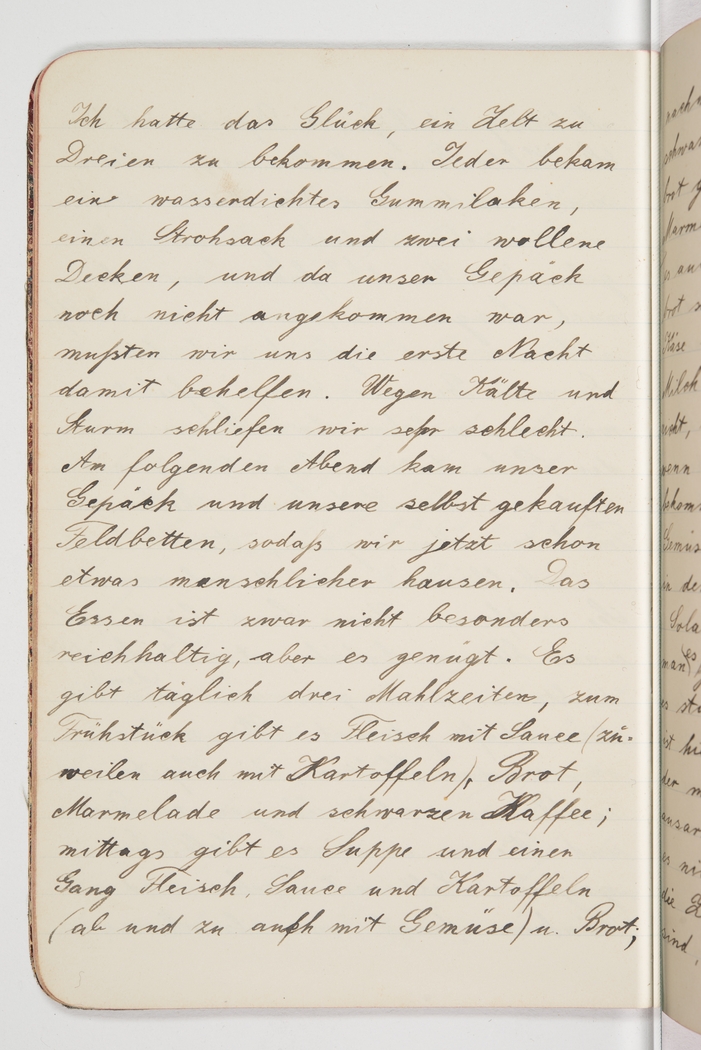 Ich hatte das Glück, ein Zelt zu
Dreien zu bekommen. Jeder bekam
ein wasserdichtes Gummilaken,
einen Strohsack und zwei wollene
Decken, und da unser Gepäck
noch nicht angekommen war,
mußten wir uns die erste Nacht
damit behelfen. Wegen Kälte und
Sturm schliefen wir sehr schlecht.
Am folgenden Abend kam unser
Gepäck und unsere selbst gekauften
Feldbetten, sodaß wir jetzt schon
etwas menschlicher hausen. Das
Essen ist zwar nicht besonders
reichhaltig, aber es genügt. Es
gibt täglich drei Mahlzeiten, zum
Frühstück gibt es Fleisch mit Sauce (zu-
weilen auch mit Kartoffeln), Brot,
Marmelade und schwarzen Kaffee;
mittags gibt es Suppe und einen
Gang Fleisch, Sauce und Kartoffeln
(ab und zu auch mit Gemüse) u. Brot;